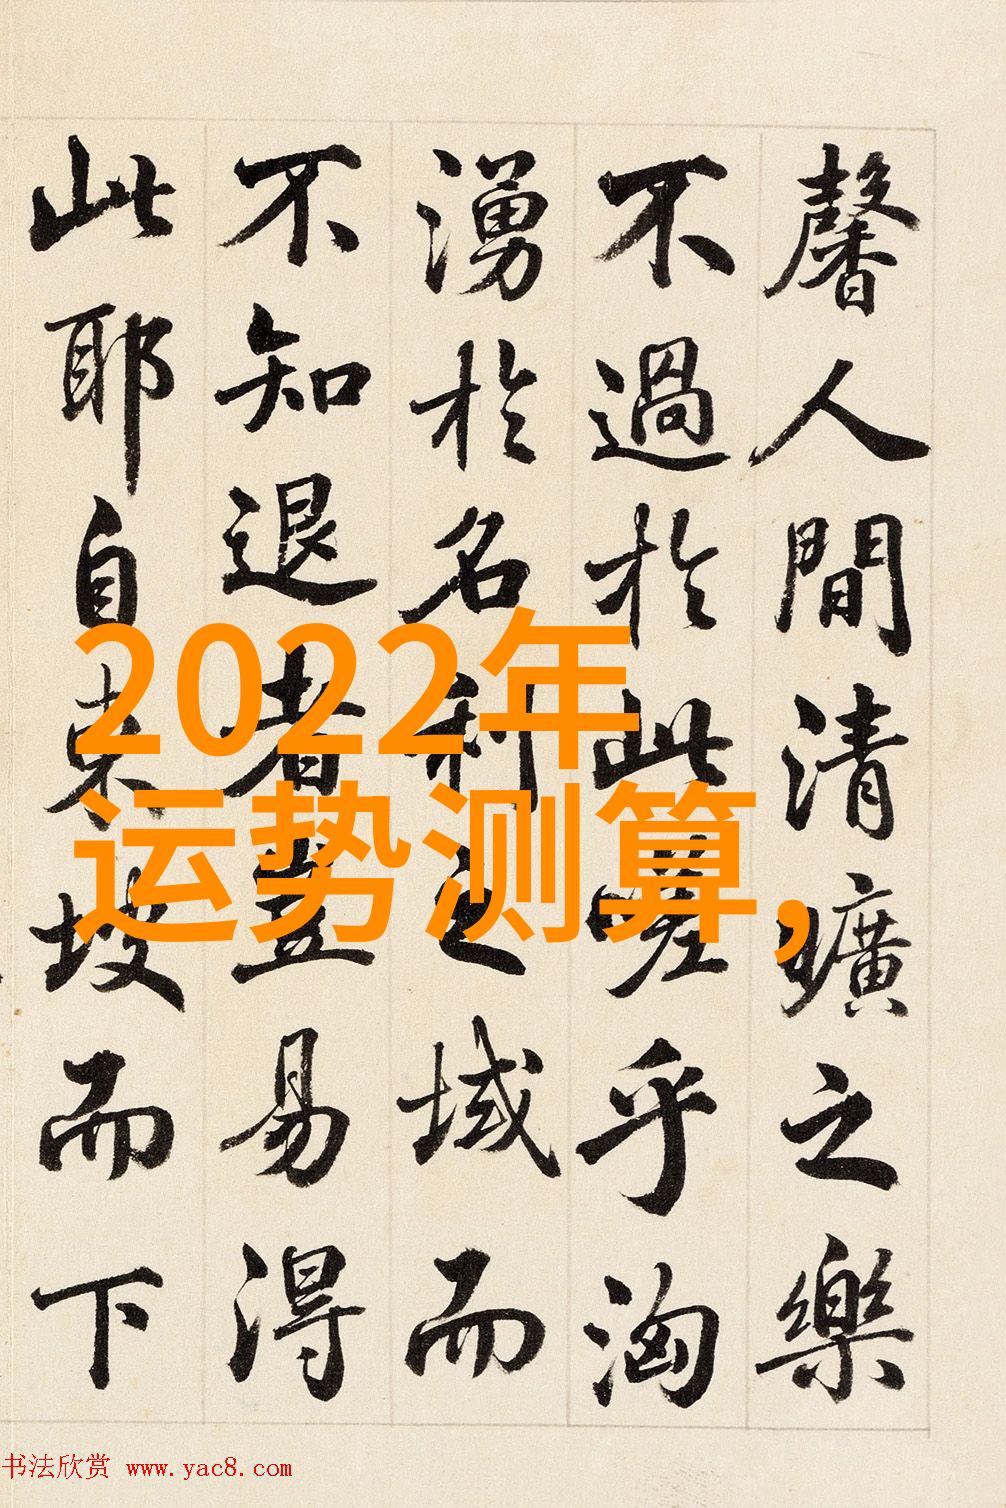 馨人間清曠之樂
不過於此嗟乎洶
湧於名利之域而
不知退者豈易得
此耶自東坡而下
2022年
运势测算,
书法欣赏 www.yac8.com